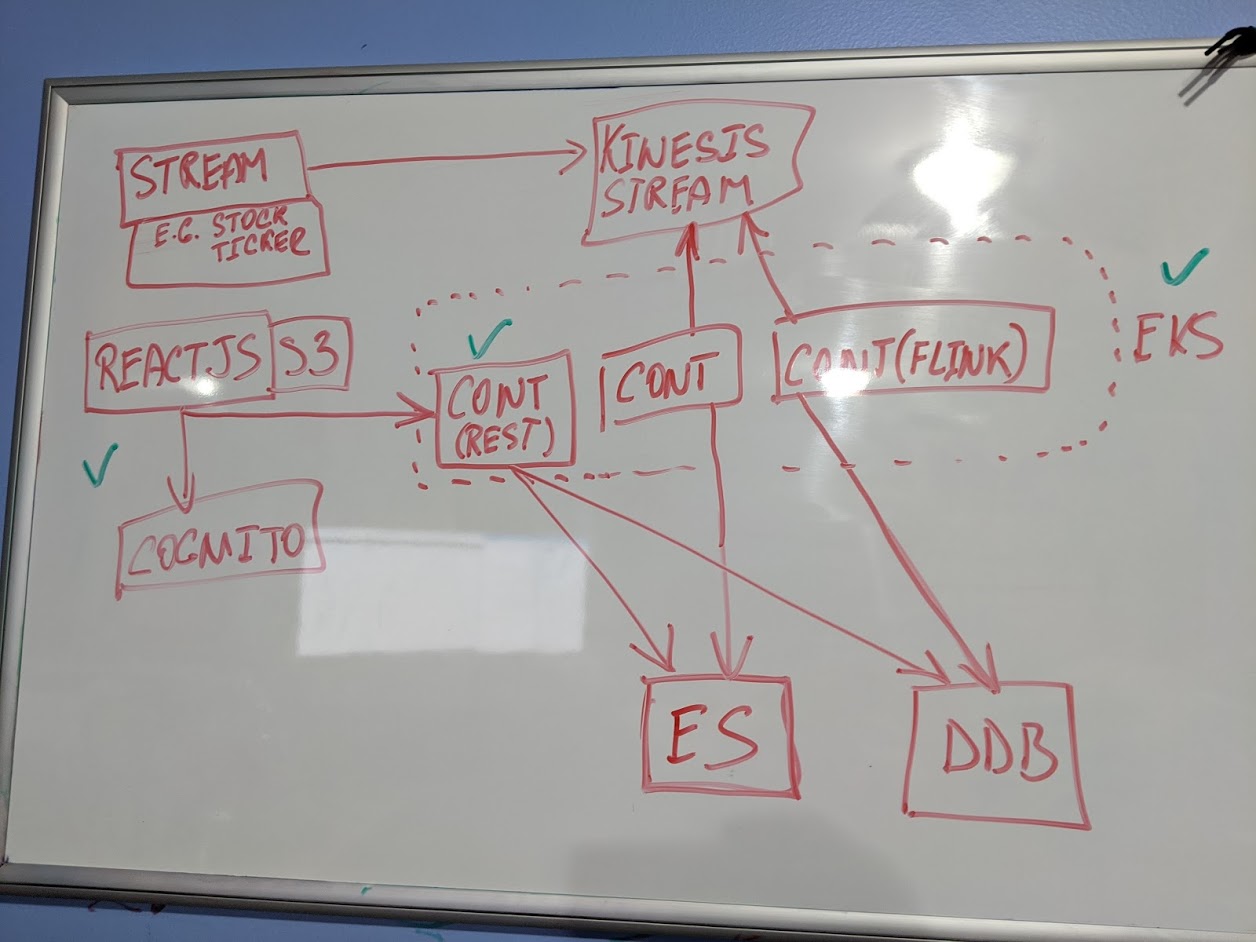 STREAM
E.G. STOCK
TICKER
KINESIS
STREAM
REACTJS
S3
CONT
(REST)
CONT
CONT(FLINK)
EKS
COGNITO
ES
DDB